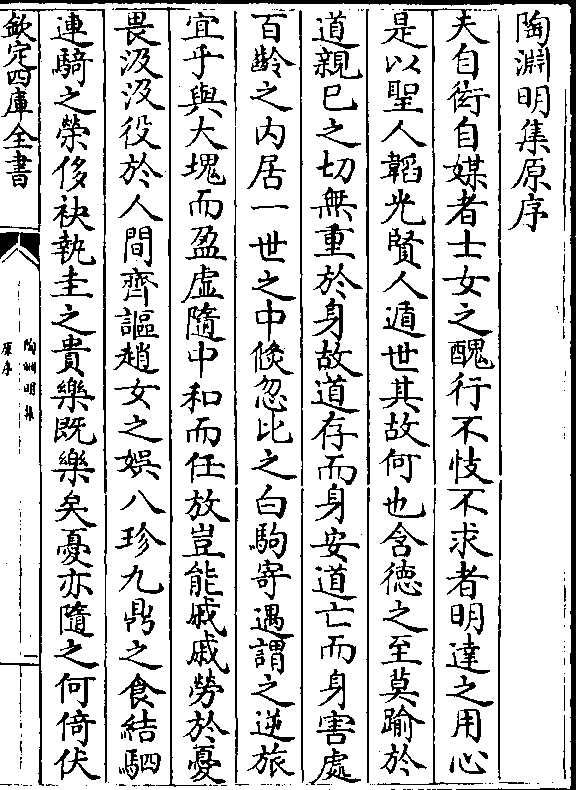 陶淵明集原序
夫自衒自媒者士女之醜行不忮不求者明達之用心
是以聖人韜光賢人遁世其故何也含德之至莫踰於
道親已之切無重於身故道存而身安道亡而身害處
百齡之內居一世之中倐忽比之白駒寄遇謂之逆旅
宜乎與大塊而盈虛隨中和而任放豈能戚戚勞於憂
畏汲汲役於人間齊謳趙女之娛八珍九鼎之食結駟
連騎之榮侈袂執圭之貴樂既樂矣憂亦隨之何倚伏
欽定四庫全書
陶淵明集
原序
一